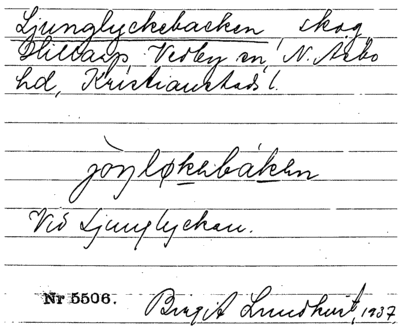 Ljunglyckebacken, skog
Hilltarp Vedby sn, N. Åsbo
hd, Kristianstads l.
jòŋløkebáken
Vid Ljunglyckan.
Nr 5506.
Birgit Lundkvist, 1937